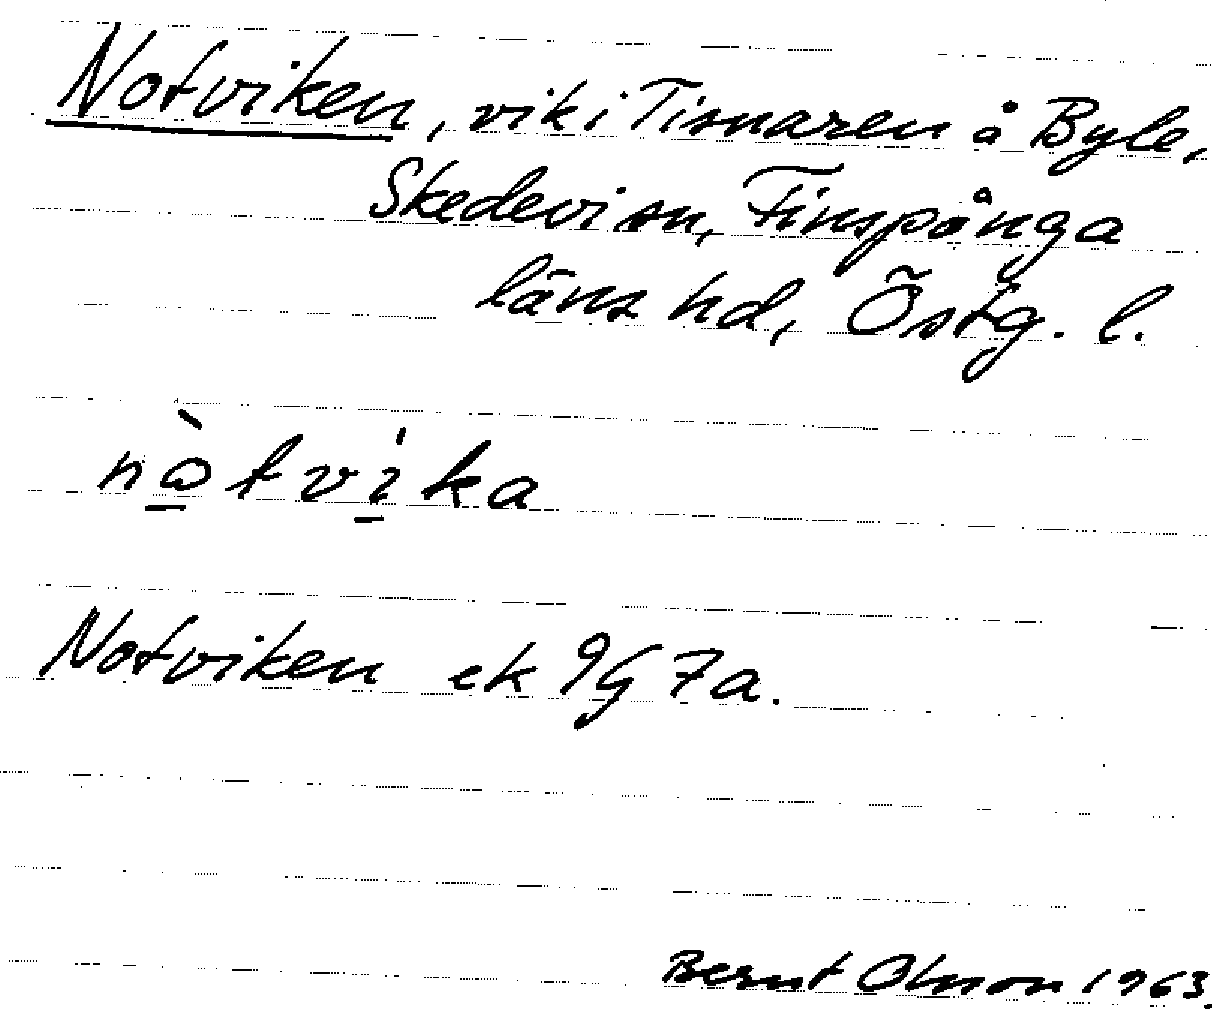 Notviken, vik i Tisnaren å Byle,
Skedevi sn, Finspånga
läns hd, Östg. l.
nò̲tví̲ka
Notviken ek 9G 7a.
Bernt Olsson 1963.